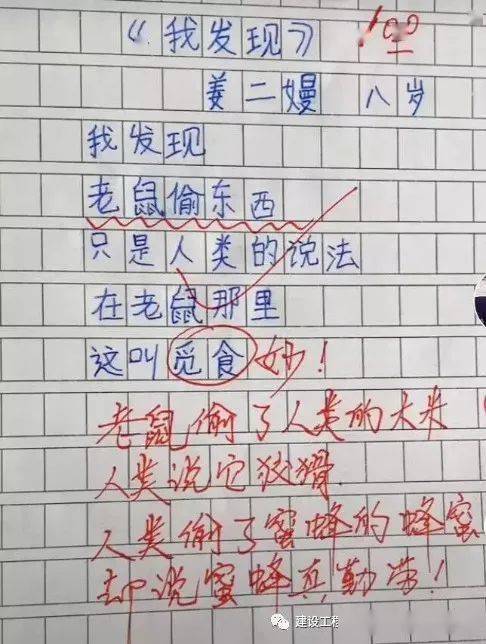 《我发现》 100
姜二嫚 八岁
我发现
老鼠偷东西
只是人类的说法
在老鼠那里
这叫觅食 妙!
老鼠偷了人类的大米
人类说它狡猾
人类偷了蜜蜂的蜂蜜
却说蜜蜂真勤劳!
建设工程